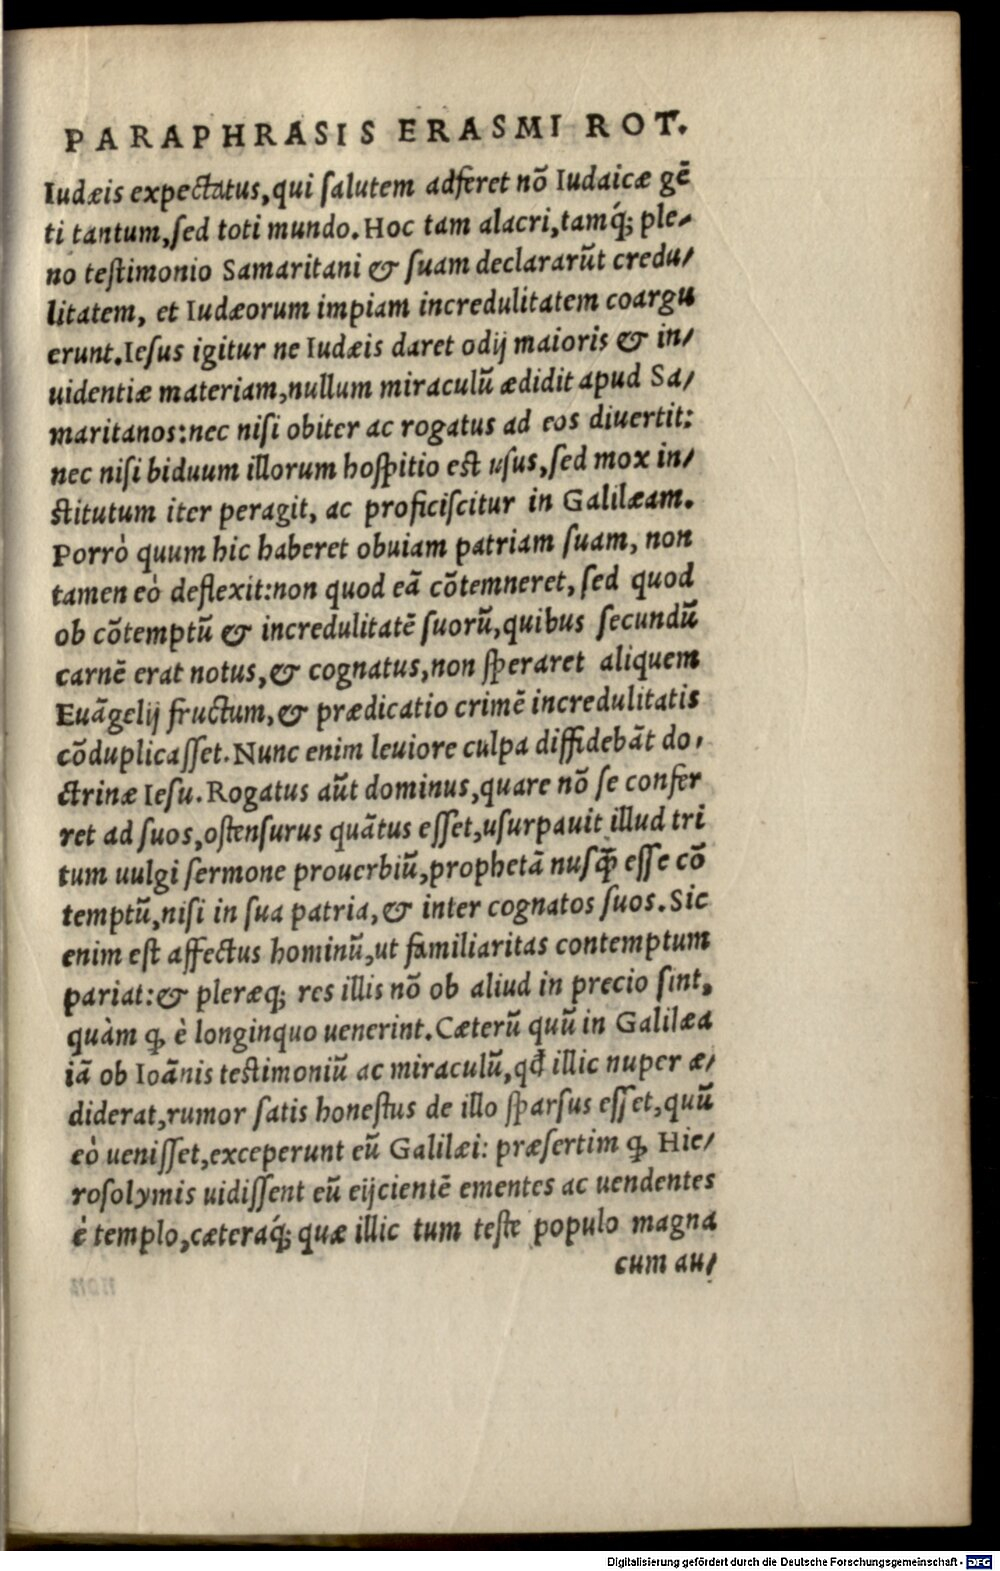 PARAPHRASIS ERASMI ROT.
Iudæis expectatus, qui salutem adferet nō Iudaicæ gē
ti tantum, sed toti mundo. Hoc tam alacri, tamq́; ple-
no testimonio Samaritani & suam declararūt credu/
litatem, et Iudæorum impiam incredulitatem coargu
erunt. Iesus igitur ne Iudæis daret odij maioris & in/
uidentiæ materiam, nullum miraculū ædidit apud Sa/
maritanos: nec nisi obiter ac rogatus ad eos diuertit:
nec nisi biduum illorum hospitio est usus, sed mox in/
stitutum iter peragit, ac proficiscitur in Galilæam.
Porrò quum hic haberet obuiam patriam suam, non
tamen eò deflexit: non quod eā cōtemneret, sed quod
ob cōtemptū & incredulitatē suorū, quibus secundū
carnē erat notus, & cognatus, non speraret aliquem
Euāgelij fructum, & prædicatio crimē incredulitatis
cōduplicasset. Nunc enim leuiore culpa diffidebāt do/
ctrinæ Iesu. Rogatus aūt dominus, quare nō se confer
ret ad suos, ostensurus quātus esset, usurpauit illud tri
tum uulgi sermone prouerbiū, prophetā nusq̄ esse cō
temptū, nisi in sua patria, & inter cognatos suos. Sic
enim est affectus hominū, ut familiaritas contemptum
pariat: & pleræq; res illis nō ob aliud in precio sint,
quàm ꝙ è longinquo uenerint. Cæterū quū in Galilæa
iā ob Ioānis testimoniū ac miraculū, qď illic nuper æ/
diderat, rumor satis honestus de illo sparsus esset, quū
eò uenisset, exceperunt eū Galilæi: præsertim ꝙ Hie/
rosolymis uidissent eū eijcientē ementes ac uendentes
è templo, cæteraq́; quæ illic tum teste populo magna
cum au/
Digitalisierung gefördert durch die Deutsche Forschungsgemeinschaft - DFG